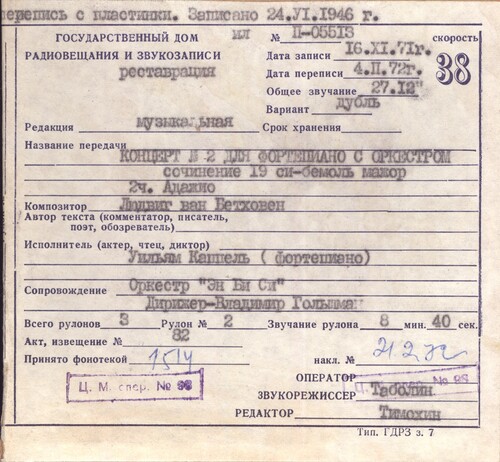 перепись с пластинки. Записано 24.VI.1946 г.
ГОСУДАРСТВЕННЫЙ ДОМ
РАДИОВЕЩАНИЯ И ЗВУКОЗАПИСИ
реставрация
№ П-05513
скорость
38
Дата записи 16.XI.71г.
Дата переписи 4.II.72г.
Общее звучание 27.12"
Вариант дубль
Редакция музыкальная Срок хранения
Название передачи
КОНЦЕРТ № 2 ДЛЯ ФОРТЕПИАНО С ОРКЕСТРОМ
сочинение 19 си-бемоль мажор
2ч. Адажио
Композитор Людвиг ван Бетховен
Автор текста (комментатор, писатель,
поэт, обозреватель)
Исполнитель (актер, чтец, диктор)
Уильям Каппель ( фортепиано)
Сопровождение Оркестр "Эн Би Си"
Дирижер-Владимир Гольшман
Всего рулонов 3 Рулон № 2 Звучание рулона 8 мин. 40 сек.
Акт, извещение № 82
Принято фонотекой 1514 накл. № 21 2 72
Ц. М. опер. № 98
ОПЕРАТОР
ЗВУКОРЕЖИССЕР Таболин
РЕДАКТОР Тимохин
Тип. ГДРЗ з. 7